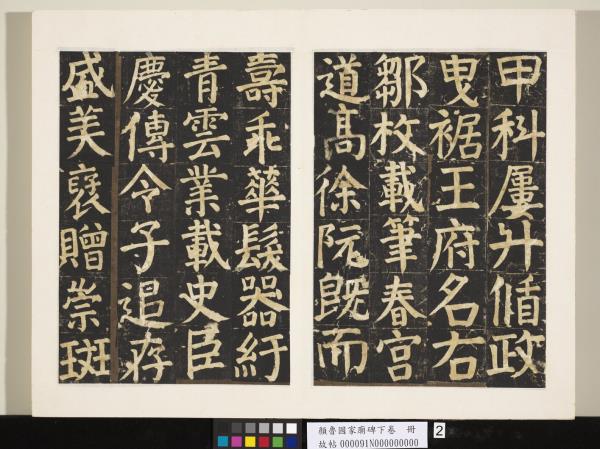 甲科屢升循政
曳裾王府名右
鄒枚載筆春宮
道高徐阮既而
壽乖華髮器紆
青雲業載史臣
慶傳令子追存
盛美襃贈崇斑
顏魯國家廟碑下卷 冊
故帖 000091N000000000
2